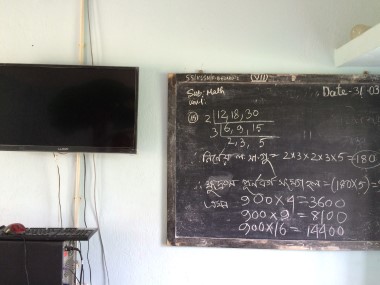 (VII)
Sub. Math
Date-3/.03
2 | 12, 18, 30
3 | 6, 9, 15
2, 3, 5
∴ নির্ণেয় ল.সা.গু = 2×3×2×3×5 = 180
∴ ক্ষুদ্রতম পূর্ণবর্গ সংখ্যা হল = (180×5) =
900×4 = 3600
900×9 = 8100
900×16 = 14400